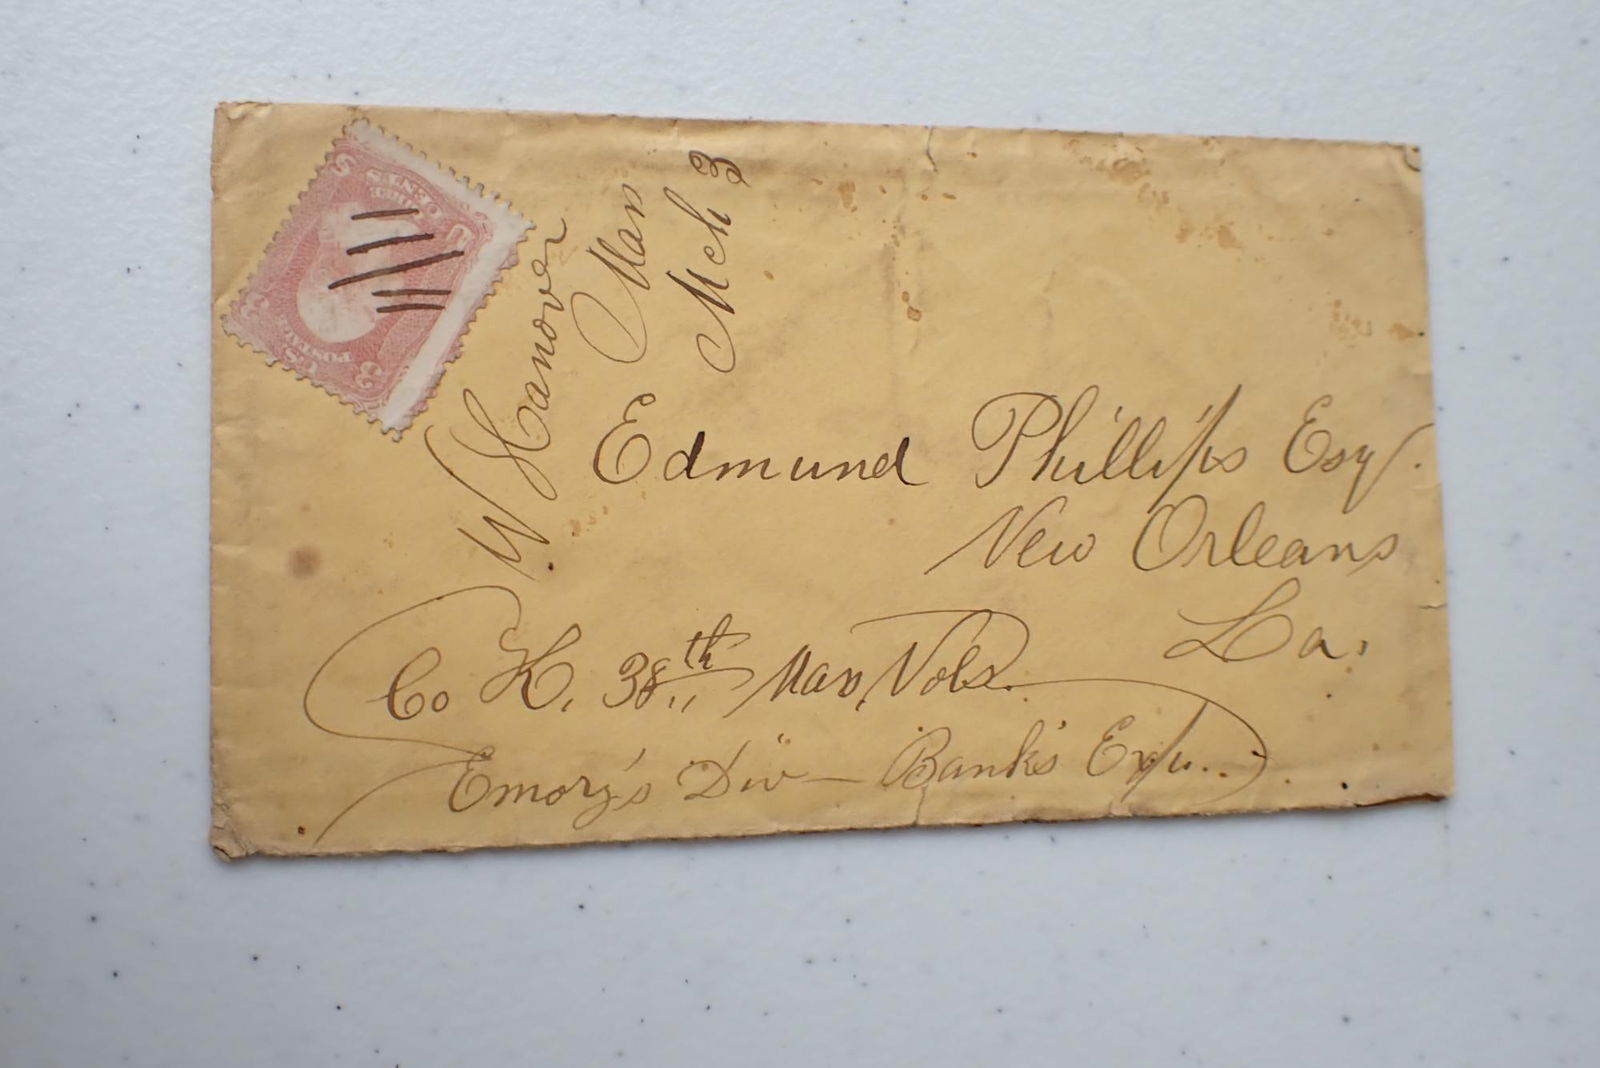 W. Hanover
Mass
Mch 3
Edmund Phillips Esq.
New Orleans
La.
Co K, 38th Mass, Vols.
Emory's Div — Bank's Exp..
U.S.
POSTAGE
THREE
CENTS
3
3